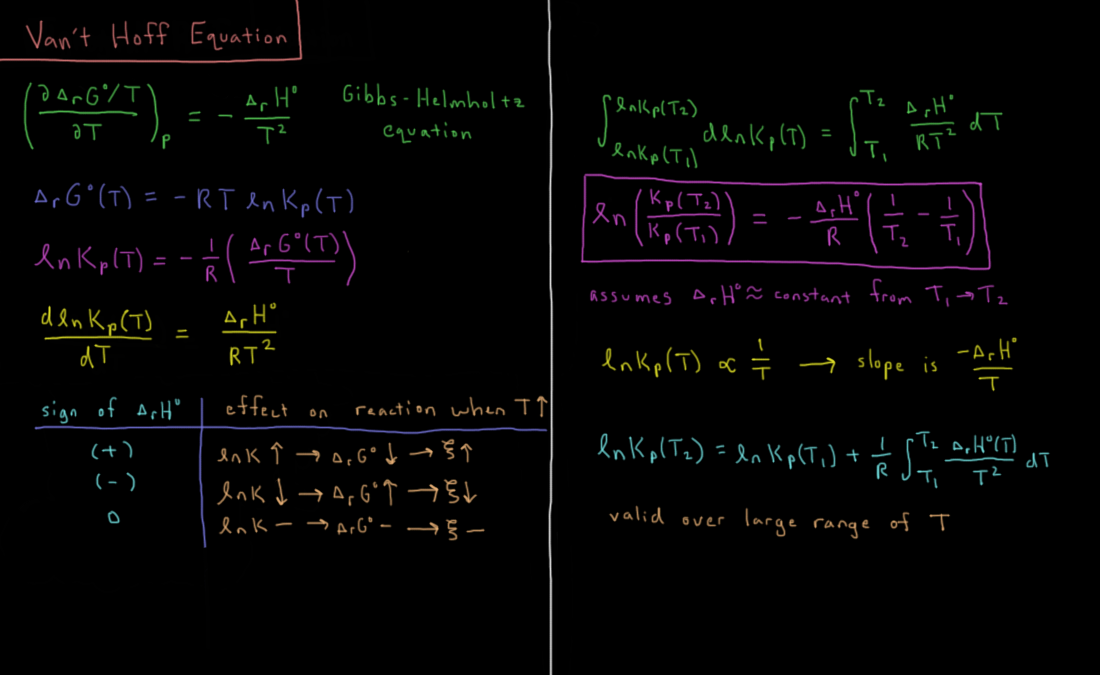 Van't Hoff Equation
(∂ΔrG°/T / ∂T)p = - ΔrH° / T² Gibbs-Helmholtz equation
ΔrG°(T) = -RT ln Kp(T)
ln Kp(T) = - 1/R (ΔrG°(T) / T)
d ln Kp(T) / dT = ΔrH° / RT²
sign of ΔrH° | effect on reaction when T↑
(+) | ln K ↑ → ΔrG° ↓ → ξ↑
(-) | ln K ↓ → ΔrG° ↑ → ξ↓
0 | ln K – → ΔrG° – → ξ –
∫_{ln Kp(T₁)}^{ln Kp(T₂)} d ln Kp(T) = ∫_{T₁}^{T₂} ΔrH° / RT² dT
ln (Kp(T₂) / Kp(T₁)) = - ΔrH° / R (1/T₂ - 1/T₁)
assumes ΔrH° ≈ constant from T₁ → T₂
ln Kp(T) ∝ 1/T → slope is -ΔrH° / T
ln Kp(T₂) = ln Kp(T₁) + 1/R ∫_{T₁}^{T₂} ΔrH°(T) / T² dT
valid over large range of T